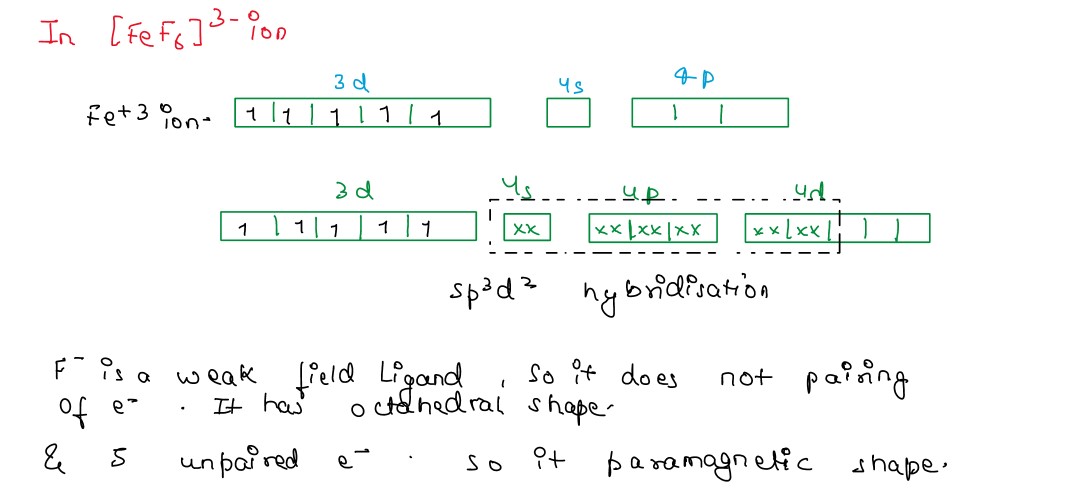 In [FeF6]3- ion
3d 4s 4p
Fe+3 ion- 1 | 1 | 1 | 1 | 1
3d 4s 4p 4d
1 | 1 | 1 | 1 | 1 xx xx|xx|xx xx|xx| | |
sp3d2 hybridisation
F- is a weak field Ligand, so it does not pairing
of e-. It has octahedral shape.
& 5 unpaired e-. so it paramagnetic shape.